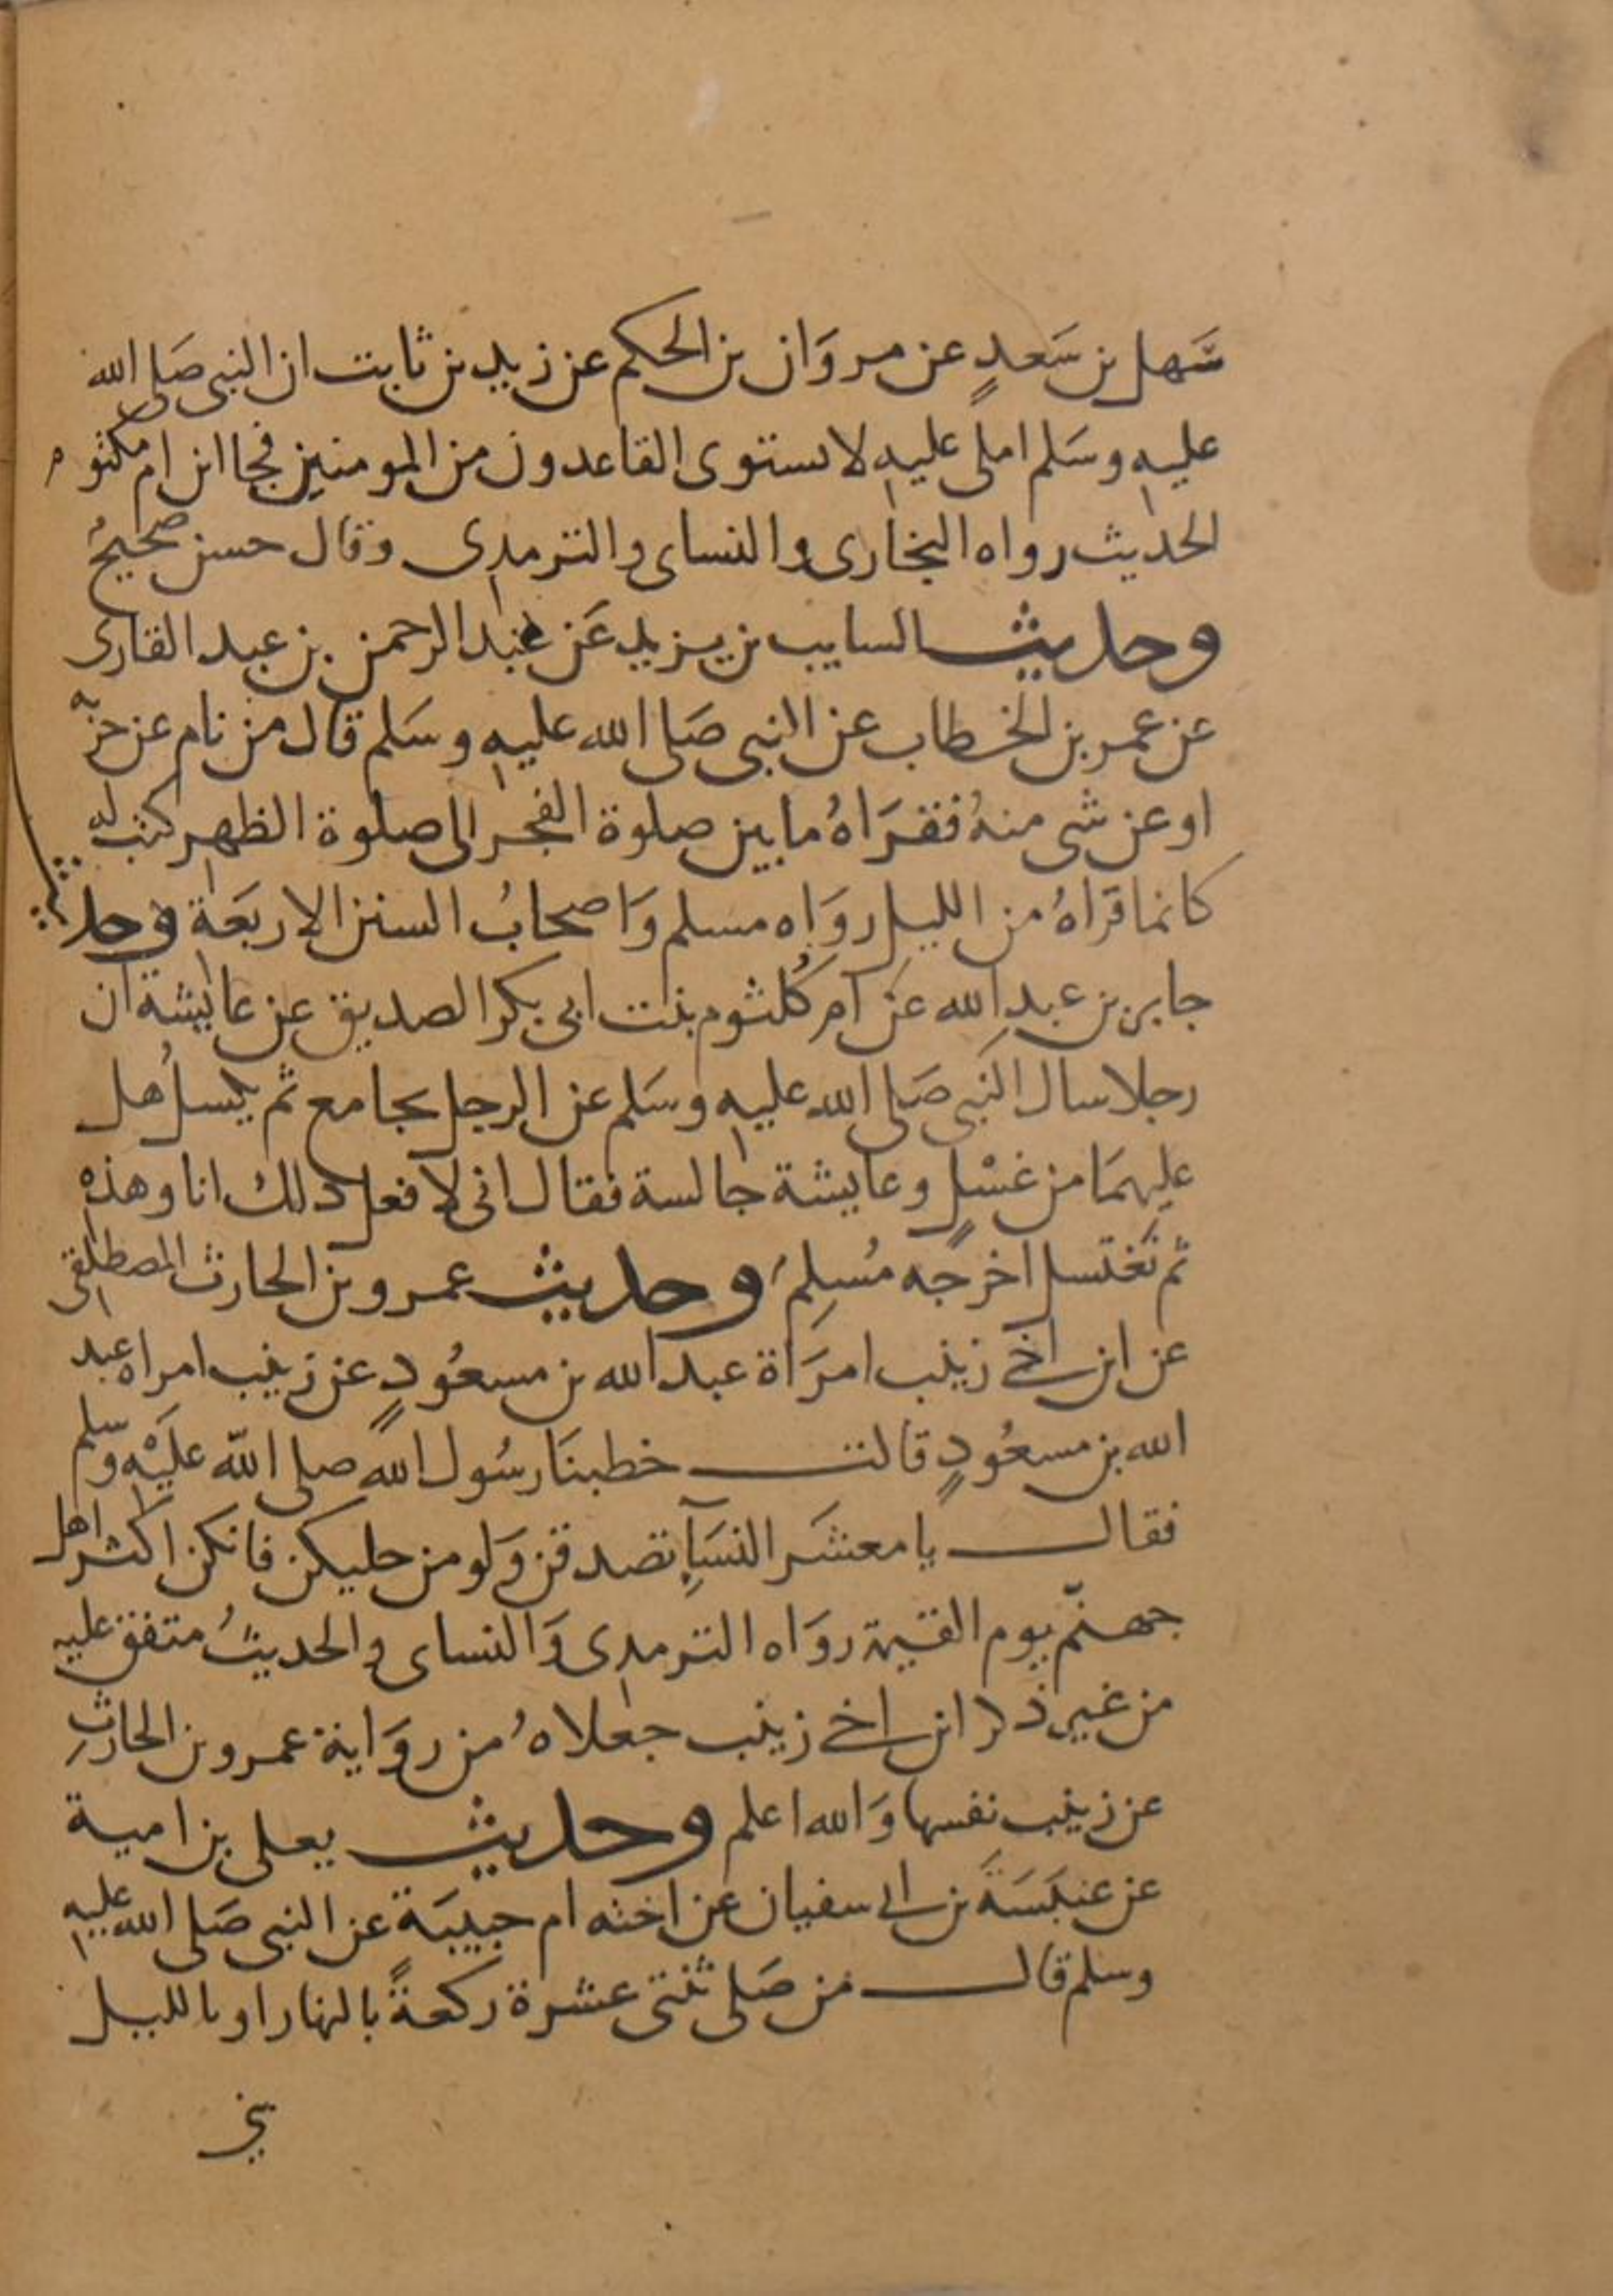 سَهل بن سَعدٍ عن مروَان بن الحكم عن زيد بن ثابت ان النبى صَلى الله
عليه وسَلم املى عليه لا يستوى القاعدون من المومنين فجا ابن ام مكتوم
الحديث رواه البخارى والنساى والترمدى وقال حسن صحيحُ
وحديث السايب بن يزيد عَن عبد الرحمن بن عبد القارى
عن عمر بن الخطاب عن النبى صَلى الله عليه وسَلم قال من نام عن حزبه
او عن شى منهُ فقرَاهُ ما بين صلوة الفجر الى صلوة الظهر كتب له
كانما قراهُ من الليل روَاه مسلم وَاصحابُ السنن الاربعَة وحديث
جابر بن عبدِ الله عَن ام كُلثوم بنت ابى بكر الصديق عن عايشة ان
رجلا سال النبى صَلى الله عليه وسَلم عن الرجل يجامع ثم يكسلُ هل
عليهمَا من غسْلٍ وعايشة جالسة فقال انى لا فعل ذلك انا وهذه
ثم نغتسل اخرجَه مُسلِم وحديث عمرو بن الحارث المصطلقى
عن ابن اخى زينب امرَاة عبد الله بن مسعُودٍ عن زينب امراه عبد
الله بن مسعُودٍ قالت خطبنَا رسُول الله صلى الله عليْه وسلم
فقال يا معشَر النسَآءِ تصدقن وَلو من حليكن فانكن اكثر اهل
جهنّم يوم القيمة روَاه الترمدى وَالنساى والحديثُ متفق عليه
من غير ذكر ابن اخى زينب جعلاهُ من روَاية عمرو بن الحارثِ
عن زينب نفسها وَالله اعلم وحديث يعلى بن امية
عن عنبَسَة بن ابى سفيان عن اخته ام حبيبَة عن النبى صَلى الله عليه
وسلم قال من صَلى ثنتى عشرة ركعةً بالنهار او بالليل
بنى